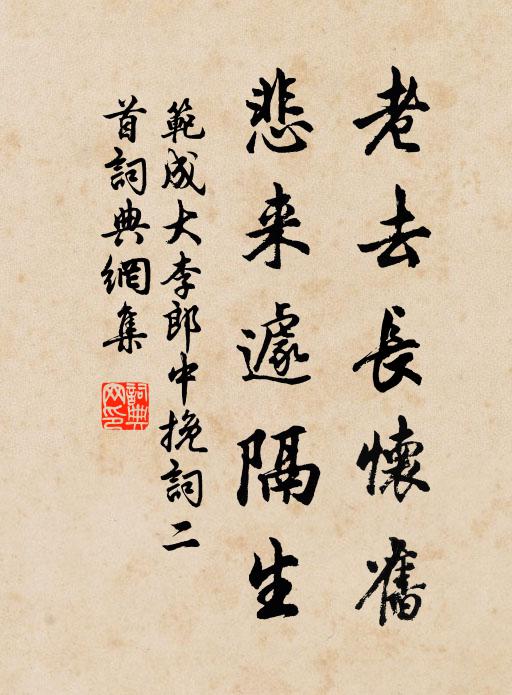 老去長懷舊
悲来遽隔生
範成大李郎中挽詞二
首詞典網集
詞典
网印